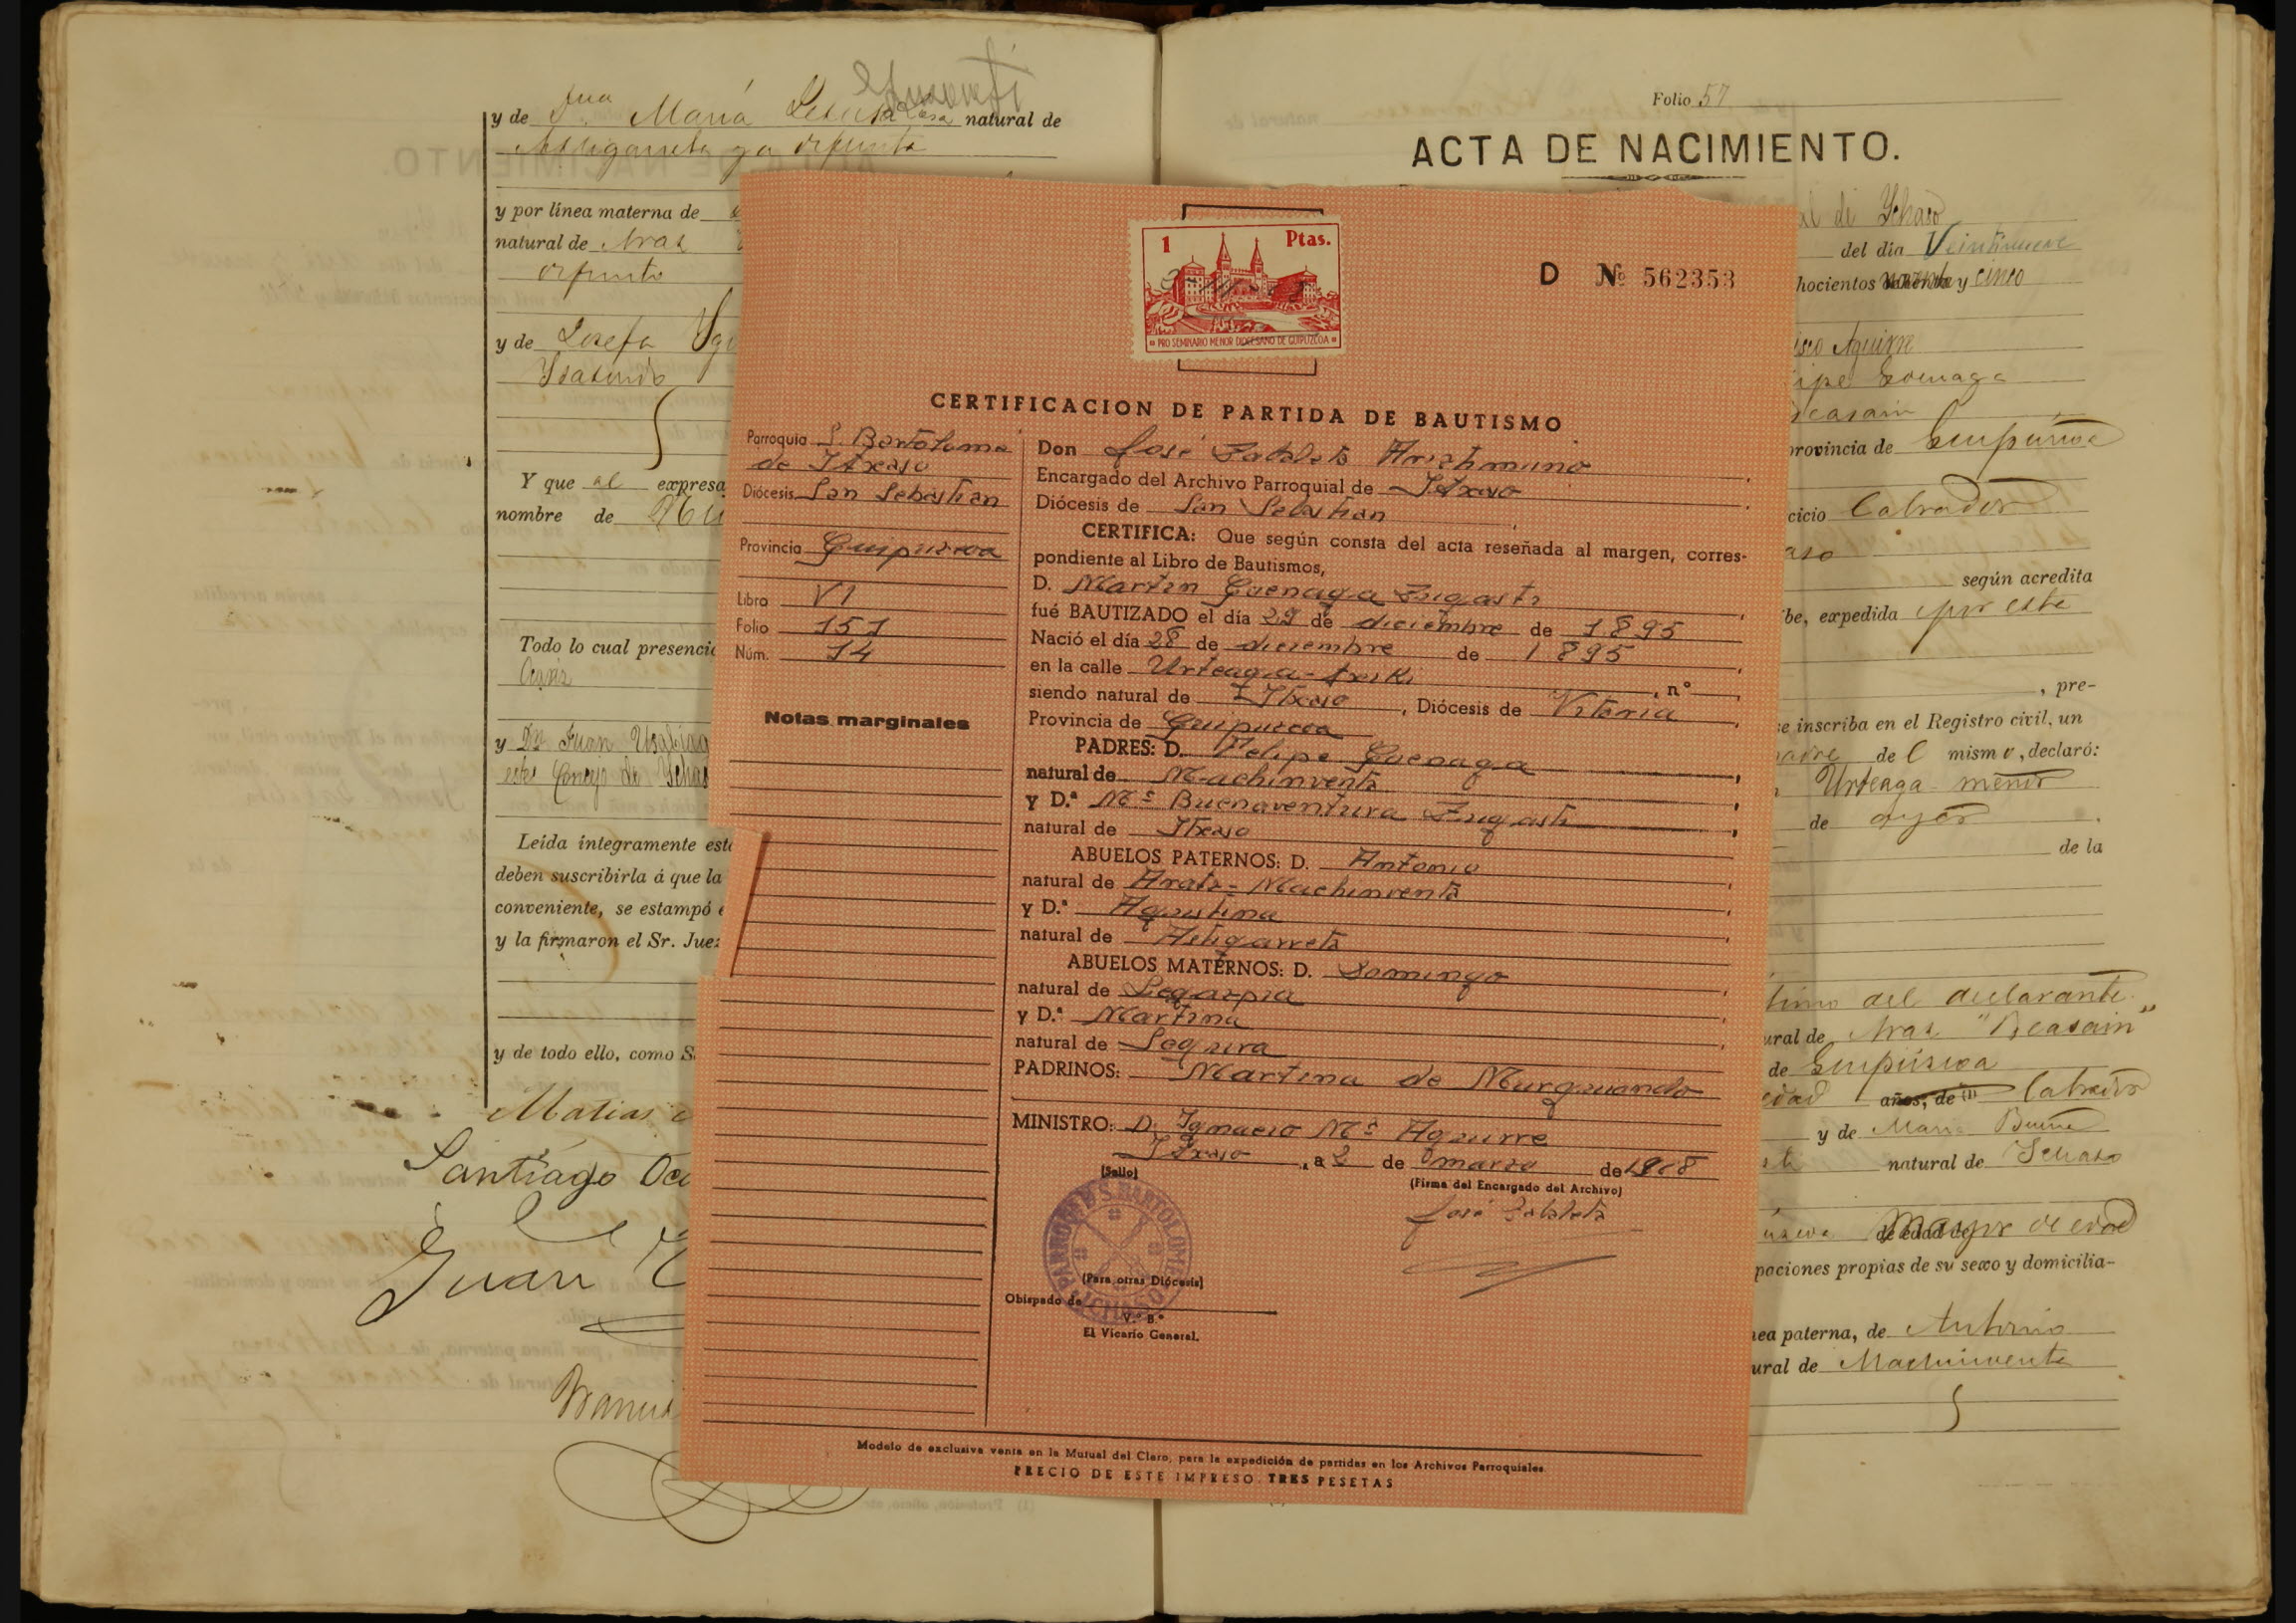 y de Jna María
natural de
ya difunta
y por línea materna de
natural de Araz
difunto
y de Josefa
Y que al expresa
nombre de
Todo lo cual presencia
y Dn Juan
este Concejo de Ichas
Leída íntegramente esta
deben suscribirla á que la
conveniente, se estampó e
y la firmaron el Sr. Juez
y de todo ello, como S
Matias
Santiago
Juan
Manuel
1 Ptas.
PRO SEMINARIO MENOR DIOCESANO DE GUIPUZCOA
D Nº 562353
CERTIFICACION DE PARTIDA DE BAUTISMO
Parroquia S. Bartolome
de Itxaso
Diócesis San Sebastian
Provincia Guipuzcoa
Libro VI
Folio 151
Núm. 14
Notas marginales
Don José Zabaleta Arichmuno
Encargado del Archivo Parroquial de Itxaso
Diócesis de San Sebastian
CERTIFICA: Que según consta del acta reseñada al margen, corres-
pondiente al Libro de Bautismos,
D. Martin Goenaga Zugasti
fué BAUTIZADO el día 29 de diciembre de 1895
Nació el día 28 de diciembre de 1895
en la calle Urteaga-txiki, nº
siendo natural de Itxaso, Diócesis de Vitoria
Provincia de Guipuzcoa
PADRES: D. Felipe Goenaga
natural de Machinventa
y D.ª Mª Buenaventura Zugasti
natural de Itxaso
ABUELOS PATERNOS: D. Antonio
natural de Aratz-Machinventa
y D.ª Agustina
natural de Astigarreta
ABUELOS MATERNOS: D. Domingo
natural de Legazpia
y D.ª Martina
natural de Segura
PADRINOS: Martina de Murguiondo
MINISTRO: D. Ignacio Mª Aguirre
Itxaso, a 2 de marzo de 1968
(Sello)
(Firma del Encargado del Archivo)
José Zabaleta
PARROQUIA DE S. BARTOLOME
ICHASO
(Para otras Diócesis)
Obispado de
V.º B.º
El Vicario General.
Modelo de exclusiva venta en la Mutual del Clero, para la expedición de partidas en los Archivos Parroquiales
PRECIO DE ESTE IMPRESO, TRES PESETAS
Folio 57
ACTA DE NACIMIENTO.
al de Ichaso
del día Veintinueve
hocientos noventa y cinco
isco Aguirre
ipe Goenaga
easain
provincia de Guipúzcoa
cicio Labrador
aso
según acredita
be, expedida por este
, pre-
se inscriba en el Registro civil, un
adre de l mismo, declaró:
Urteaga menor
de ayer
de la
timo del declarante
ural de Araz "Beasain"
de Guipúzcoa
edad años, de (1) Labrador
y de Maria Buena
natural de Ichaso
de edad de mayor de edad
paciones propias de su sexo y domicilia-
nea paterna, de Antonio
ural de Machinventa